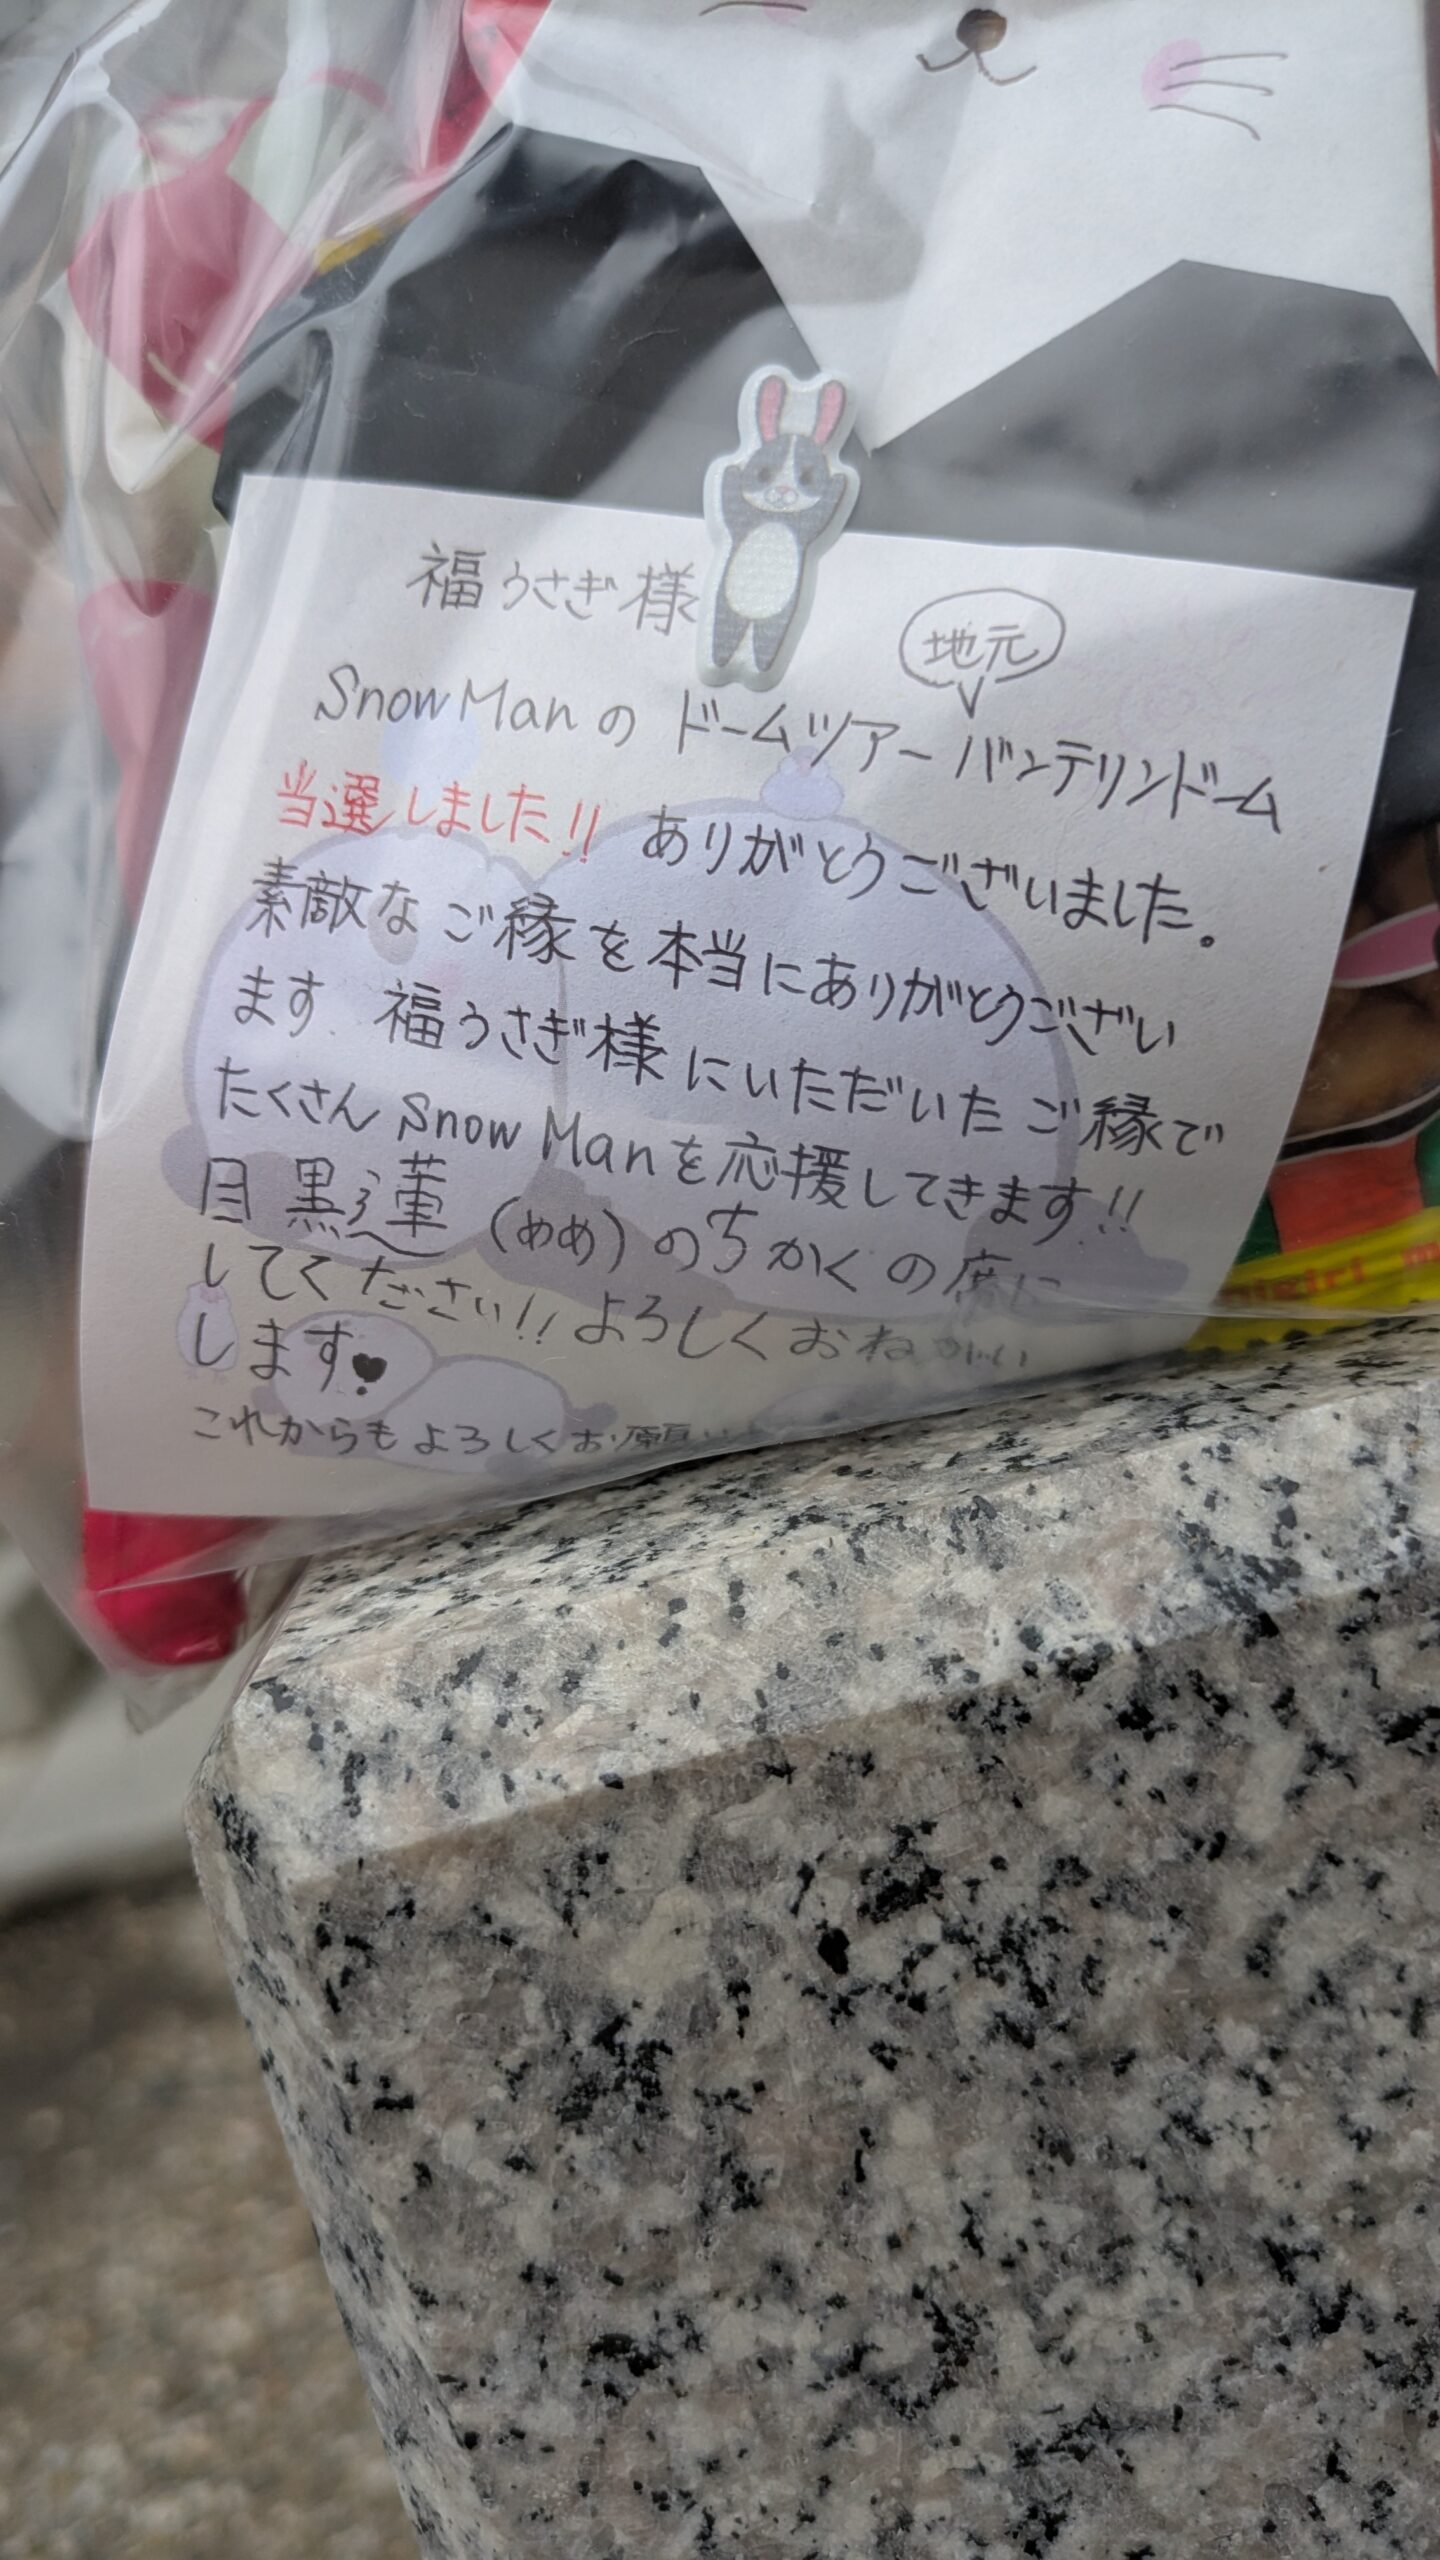 福うさぎ様
地元
Snow Manの ドームツアー バンテリンドーム
当選しました!! ありがとうございました。
素敵な ご縁を本当にありがとうござい
ます. 福うさぎ様にいただいた ご縁で
たくさん Snow Manを応援してきます!!
目黒蓮 (めめ) のちかくの席に
してください!! よろしくおねがい
します♥
これからもよろしくお願い